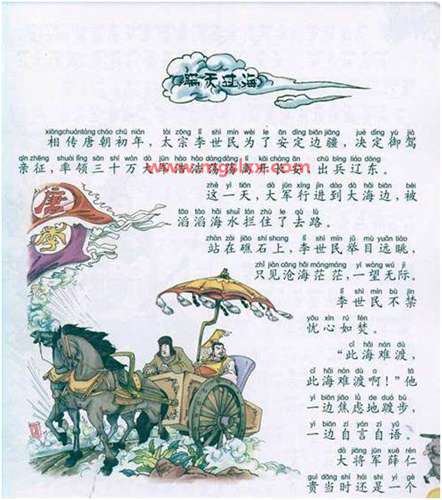 瞒天过海
xiāngchuántáng cháo chū nián tài zōng lǐ shì mín wèi le ān dìng biān jiāng jué dìng yù jià
相传唐朝初年，太宗李世民为了安定边疆，决定御驾
qīn zhēng shuài lǐng sān shí wàn dà jūn hào hào dàng dàng lí kāi cháng ān chū bīng liáo dōng
亲征，率领三十万大军浩浩荡荡离开长安，出兵辽东。
zhè yì tiān dà jūn xíng jìn dào dà hǎi biān bèi
这一天，大军行进到大海边，被
tāo tāo hǎi shuǐ lán zhù le qù lù
滔滔海水拦住了去路。
zhàn zài jiāo shí shang lǐ shì mín jǔ mù yuǎn tiào
站在礁石上，李世民举目远眺，
zhǐ jiàn cāng hǎi mángmáng yí wàng wú jì
只见沧海茫茫，一望无际。
lǐ shì mín bù jīn
李世民不禁
yōu xīn rú fén
忧心如焚。
cǐ hǎi nán dù
“此海难渡，
cǐ hǎi nán dù a tā
此海难渡啊！”他
yì biān jiāo lǜ de duó bù
一边焦虑地踱步，
yì biān zì yán zì yǔ
一边自言自语。
dà jiāng jūn xuē rén
大将军薛仁
guì dāng shí hái shì yí gè
贵当时还是一个
唐